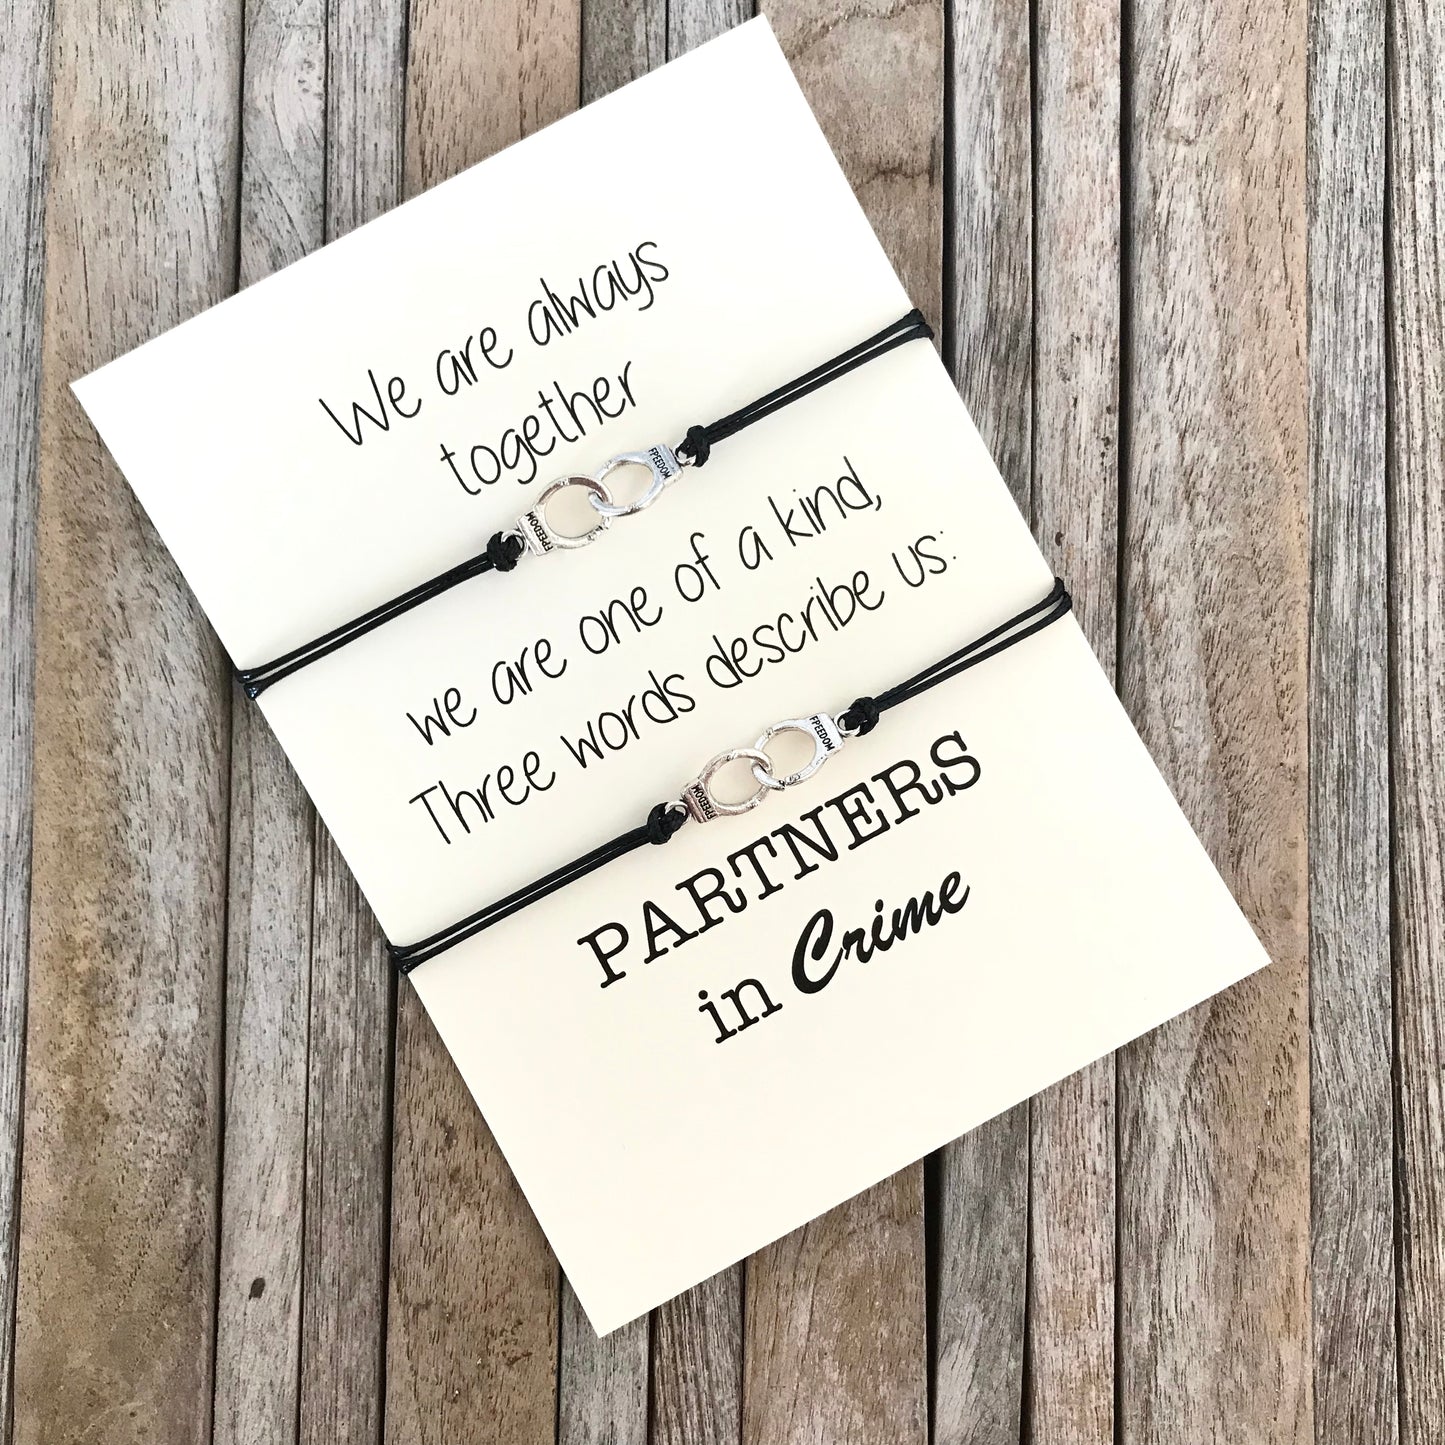 We are always
together
FPEEDOM
FPEEDOM
we are one of a kind,
Three words describe us:
FPEEDOM
FPEEDOM
PARTNERS
in Crime